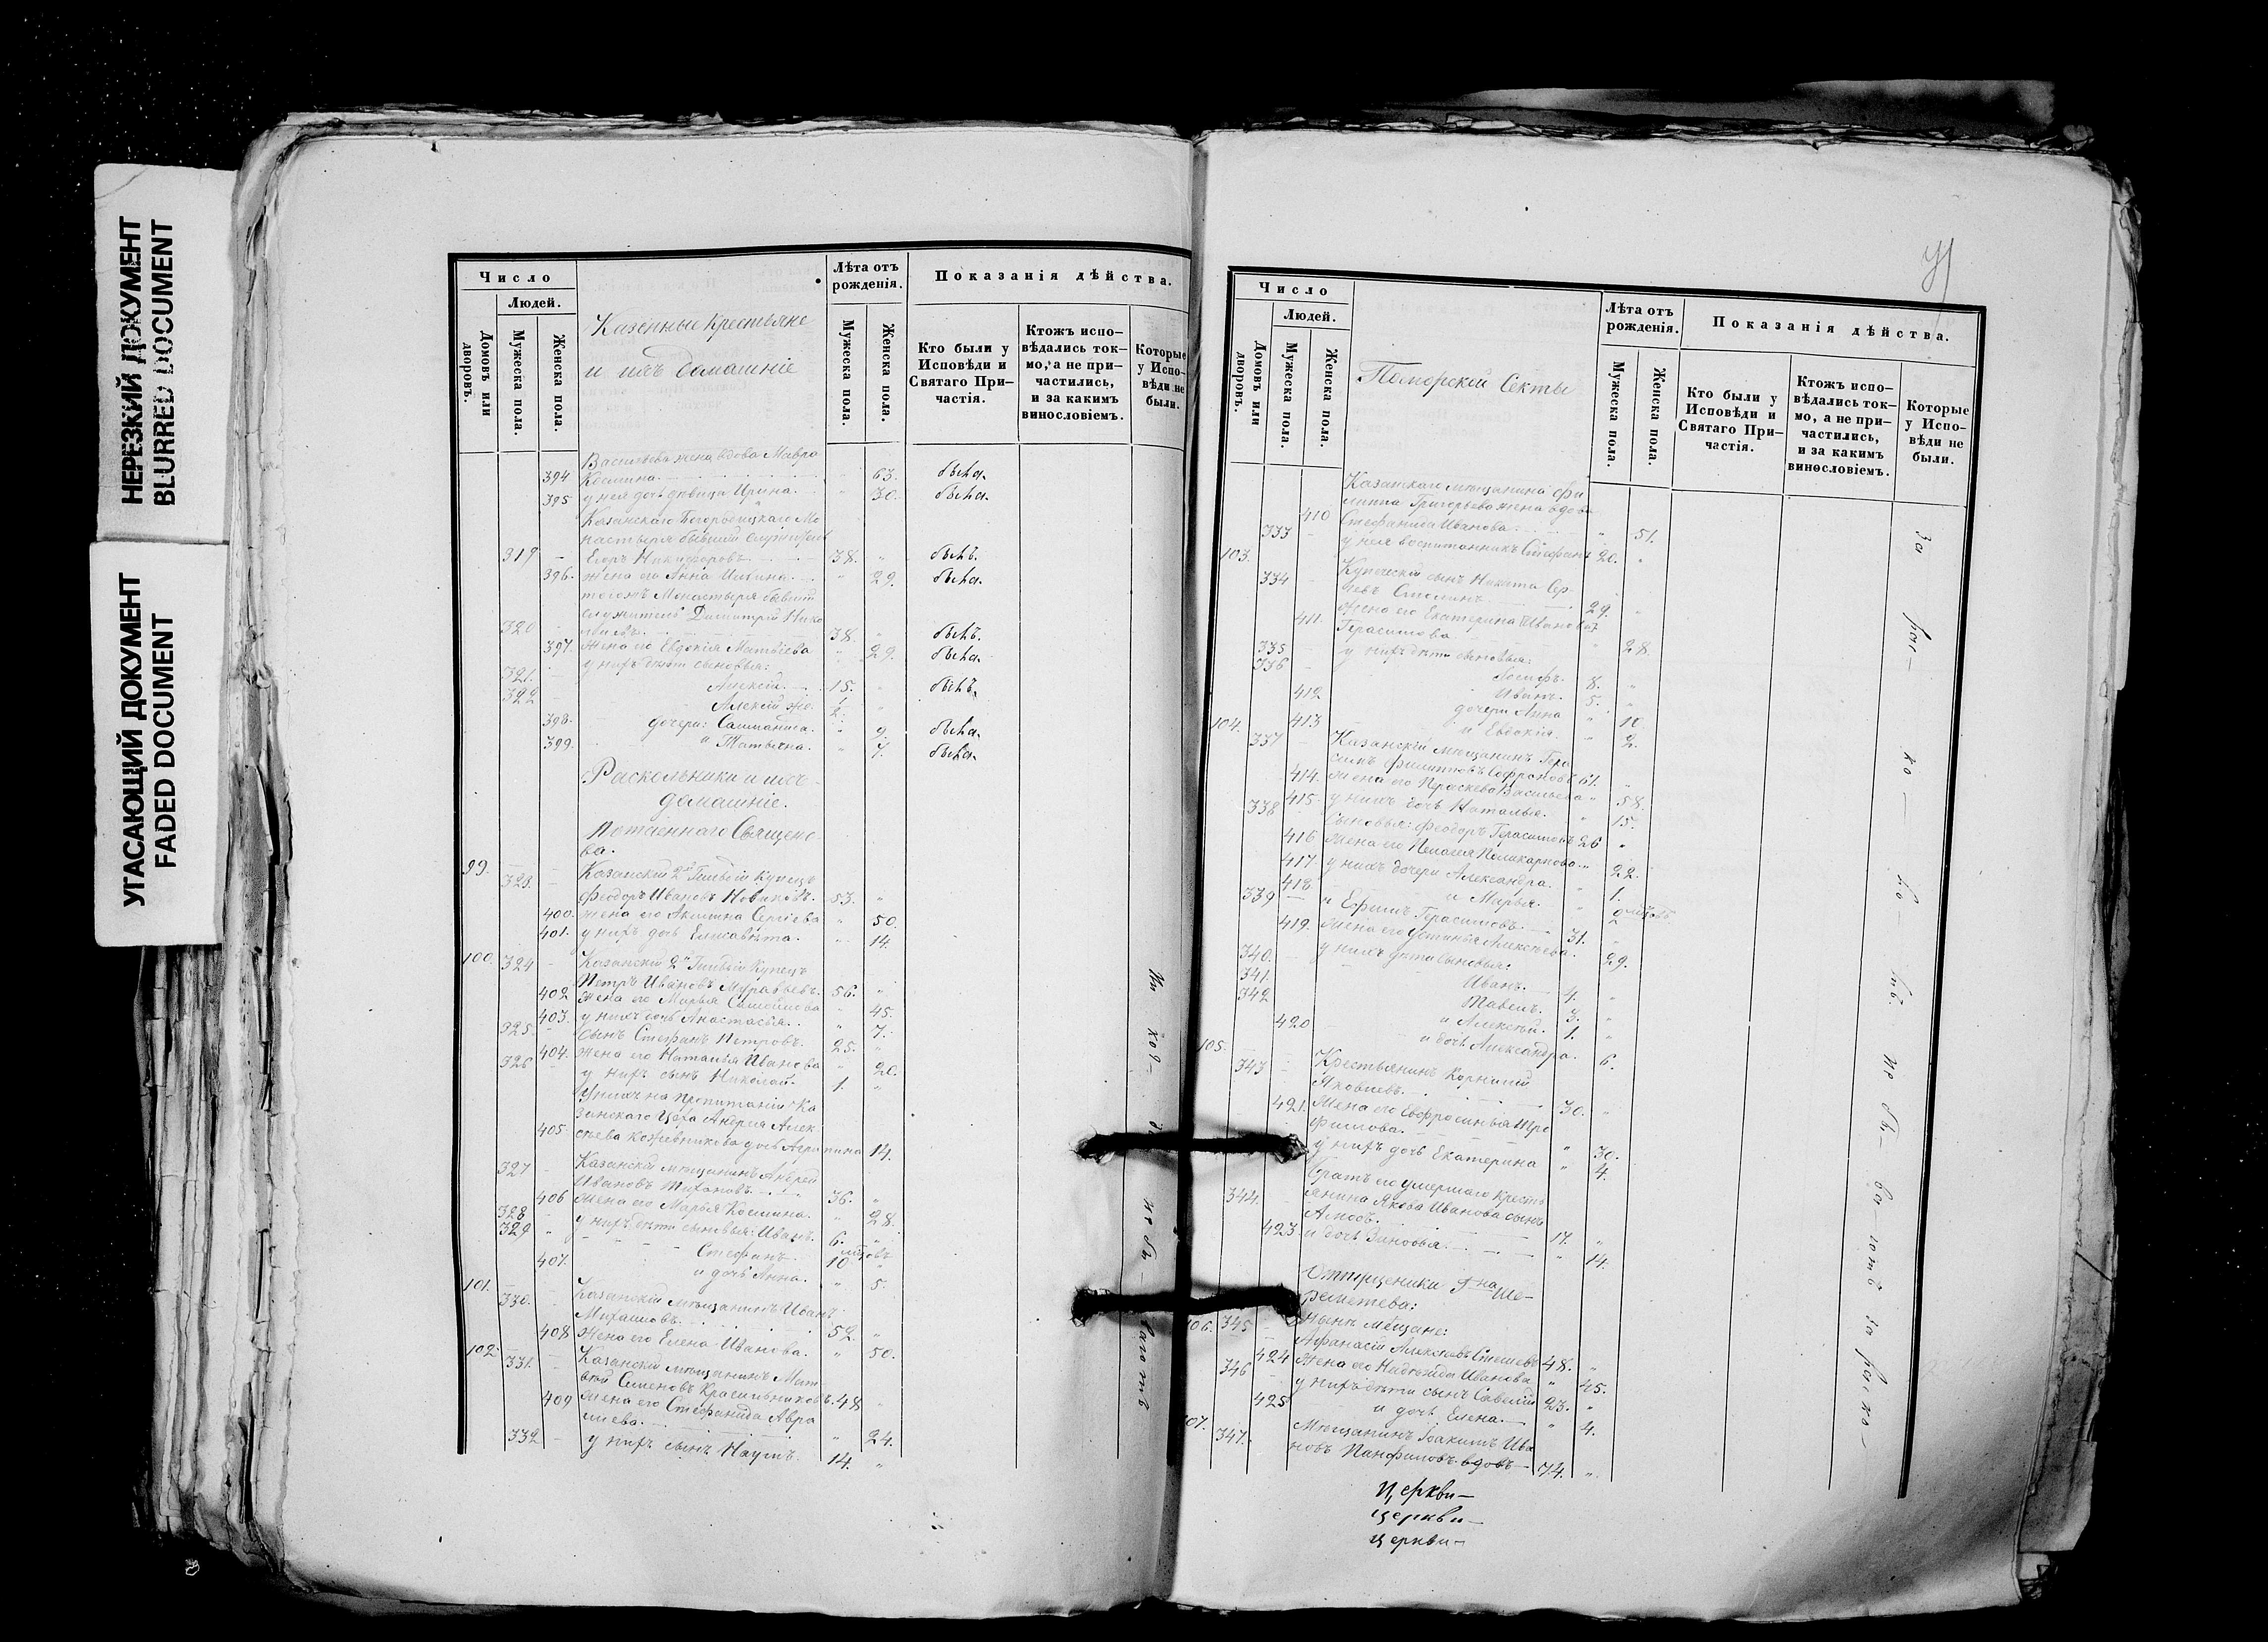 НЕРЕЗКИЙ ДОКУМЕНТ
BLURRED DOCUMENT
УГАСАЮЩИЙ ДОКУМЕНТ
FADED DOCUMENT
Число
Людей.
Домовъ или дворовъ.
Мужеска пола.
Женска пола.
Казенные Крестьяне
и ихъ домашніе
Лѣта отъ рожденія.
Мужеска пола.
Женска пола.
Показанія дѣйства.
Кто были у Исповѣди и Святаго Причастія.
Ктожъ исповѣдались токмо, а не причастились, и за какимъ винословіемъ.
Которые у Исповѣди не были.
Васильева жена вдова Мавра
394 Космина. " 63. была.
395 у нея дочь девица Ирина. " 30. была.
Казанскаго Богородицкаго Мо
настыря бывший служитель
319 – Егоръ Никифоровъ 38. " былъ.
396. жена его Анна Ильина. " 29. была.
тогожъ Монастыря бывшій
служитель Димитрій Нико
320 38. " былъ.
397. жена его Евдокія Матвѣева " 29. была.
у нихъ дѣти сыновья:
321. Алексій. 15. " былъ.
322 Алексій же.
398. дочери: 9. была.
399. и Татьяна. " 7. была.
Раскольники и ихъ
домашніе.
99. Казанскій 2й Гильдіи Купецъ
323. Феодоръ Ивановъ Новиковъ. 53. "
400. жена его Акилина Сергіева " 50.
401. у нихъ дочь Елисавѣта. " 14.
100. 324 – Казанскій 2й Гильдіи Купецъ
Петръ Ивановъ Муравьевъ. 56. "
402 жена его Марья Самойлова " 45.
403. у нихъ дочь Анастасья. " 7.
325 – сынъ Стефанъ Петровъ. 25. "
404. жена его Наталья Иванова " 20.
326 у нихъ сынъ Николай. 1. "
У нихъ на пропитаніи Ка
занскаго Цеха Андрея Алек
405. сѣева Кожевникова дочь Агрипина 14.
327 – Казанскій мѣщанинъ Андрей
Ивановъ 36. "
406 жена его Марья Космина. " 28.
328 у нихъ дѣти сыновья: Иванъ. 6. "
329 " Стефанъ 10 мцовъ "
407. и дочь Анна. " 5.
101. Казанскій мѣщанинъ Иванъ
330. Михайловъ. 52. "
408 жена его Елена Иванова. " 50.
102. 331. Казанскій мѣщанинъ Мат
вѣй Семеновъ Красильниковъ. 48 "
409 жена его Стефанида Авра
" 24.
332 – у нихъ сынъ Наумъ. 14. "
Число
Людей.
Домовъ или дворовъ.
Мужеска пола.
Женска пола.
Поморской Секты
Лѣта отъ рожденія.
Мужеска пола.
Женска пола.
Показанія дѣйства.
Кто были у Исповѣди и Святаго Причастія.
Ктожъ исповѣдались токмо, а не причастились, и за какимъ винословіемъ.
Которые у Исповѣди не были.
Казанскаго мѣщанина Фи
липпа Григорьева жена вдова
410 Стефанида Иванова. " 51.
333 у нея воспитанникъ Стефанъ 20. "
103. Купеческій сынъ Никита Сер
334 29. "
411. жена его Екатерина Иванова
Герасимова " 28.
335 у нихъ дѣти сыновья:
336 Іосифъ. 8. "
Иванъ. 5. "
412 дочери Анна " 10
413 и Евдокія. " 2.
104. 337 Казанскій мѣщанинъ Гера
симъ Филипповъ Софроновъ 61. "
414. жена его Параскева Васильева " 58.
415. у нихъ дочь Наталья. " 15.
338 сыновья: Феодоръ Герасимовъ 26 "
416 жена его Пелагея Поликарпова " 22.
417. у нихъ дочери Александра. " 1.
418. и Марья. " 2 мцовъ
339 – и Ефимъ Герасимовъ. 31. "
419. жена его Устинья Алексѣева. 29.
340. у нихъ дѣти сыновья:
341. Иванъ. 4. "
342 Павелъ. 3. "
и Алексѣй. 1. "
420 и дочь Александра. 6.
105. 343 – Крестьянинъ Корнилій
Яковлевъ. 30. "
421. жена его Евфросинья Тро
фимова. " 30.
у нихъ дочь Екатерина " 4.
братъ его умершаго Кресть
344. янина Якова Иванова сынъ
17. "
423. и дочь Зиновья. " 14.
Отпущеники Гна Ше–
реметева:
нынѣ мѣщане:
106. 345 Афанасій Алексѣевъ 48. "
424 жена его Надежда Иванова " 45.
346 у нихъ дѣти сынъ Савелій 23. "
425 и дочь Елена. " 4.
347. Мѣщанинъ Іоакимъ Ива
новъ Панфиловъ вдовъ 74. "
церкви–
церкви–
церкви–